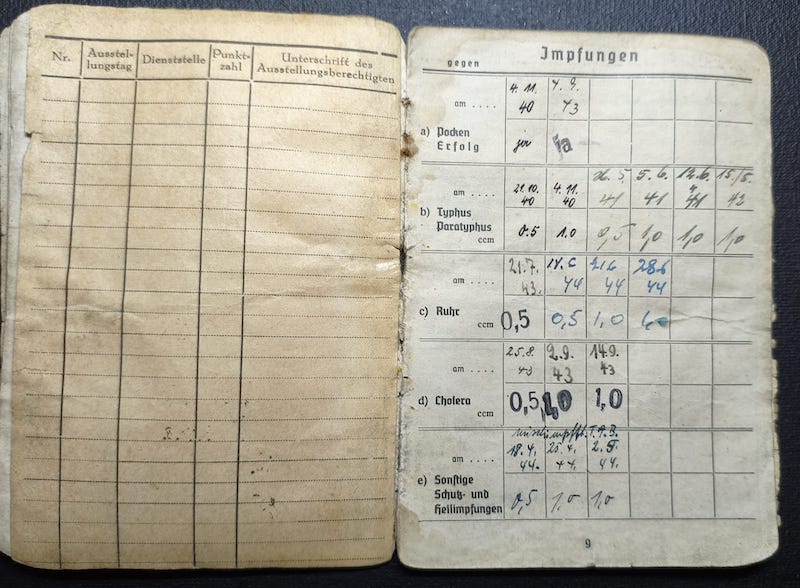 Nr.
Ausstel-
lungstag
Dienststelle
Punkt-
zahl
Unterschrift des
Ausstellungsberechtigten
Impfungen
gegen
4. 11. 4. 9.
am . . . . 40 43
a) Pocken
Erfolg ja ja
21.10. 4. 11. 26. 5. 5. 6. 12. 6. 15./5.
am . . . . 40 40 41 41 41 42
b) Typhus
Paratyphus
ccm 0.5 1.0 0,5 1,0 1,0 1,0
21.7. 14. 6 21.6 28.6
am . . . . 43. 44 44 44
c) Ruhr
ccm 0,5 0,5 1,0
25.8. 2.9. 14.9.
am . . . . 43 43 43
d) Cholera
ccm 0,5 1,0 1,0
T.A.B.
18.4. 25.4. 2.5.
am . . . . 44. 44. 44.
e) Sonstige
Schutz- und
Heilimpfungen 0,5 1,0 1,0
9